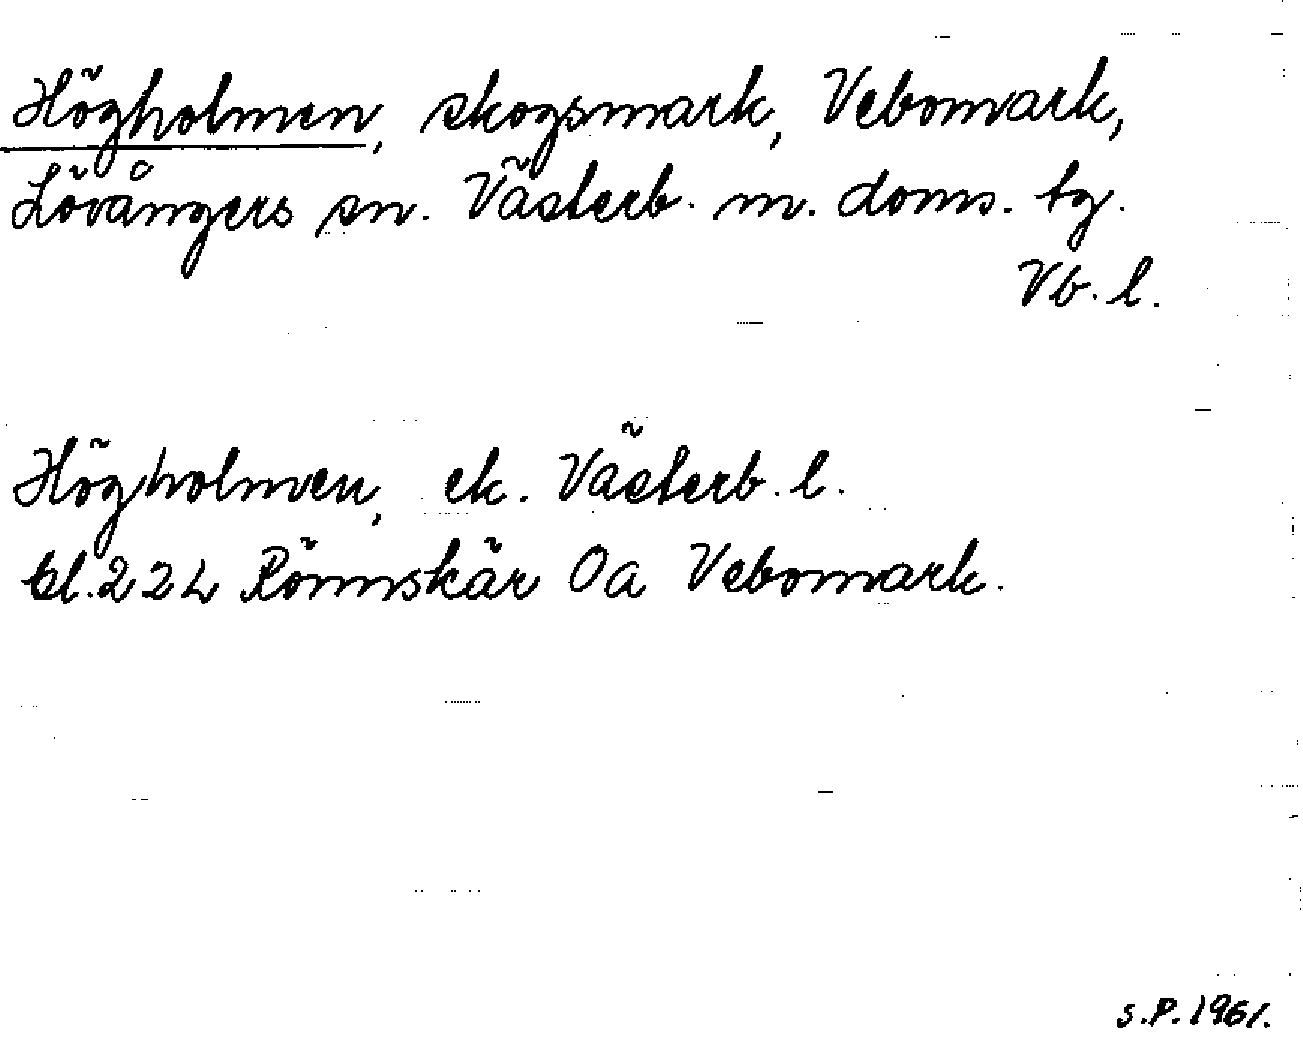 Högholmen, skogsmark, Vebomark,
Lövångers sn. Västerb. m. doms. tg.
Vb. l.
Högholmen, ek. Västerb. l.
bl. 22L Rönnskär Oa Vebomark.
S.P. 1961.